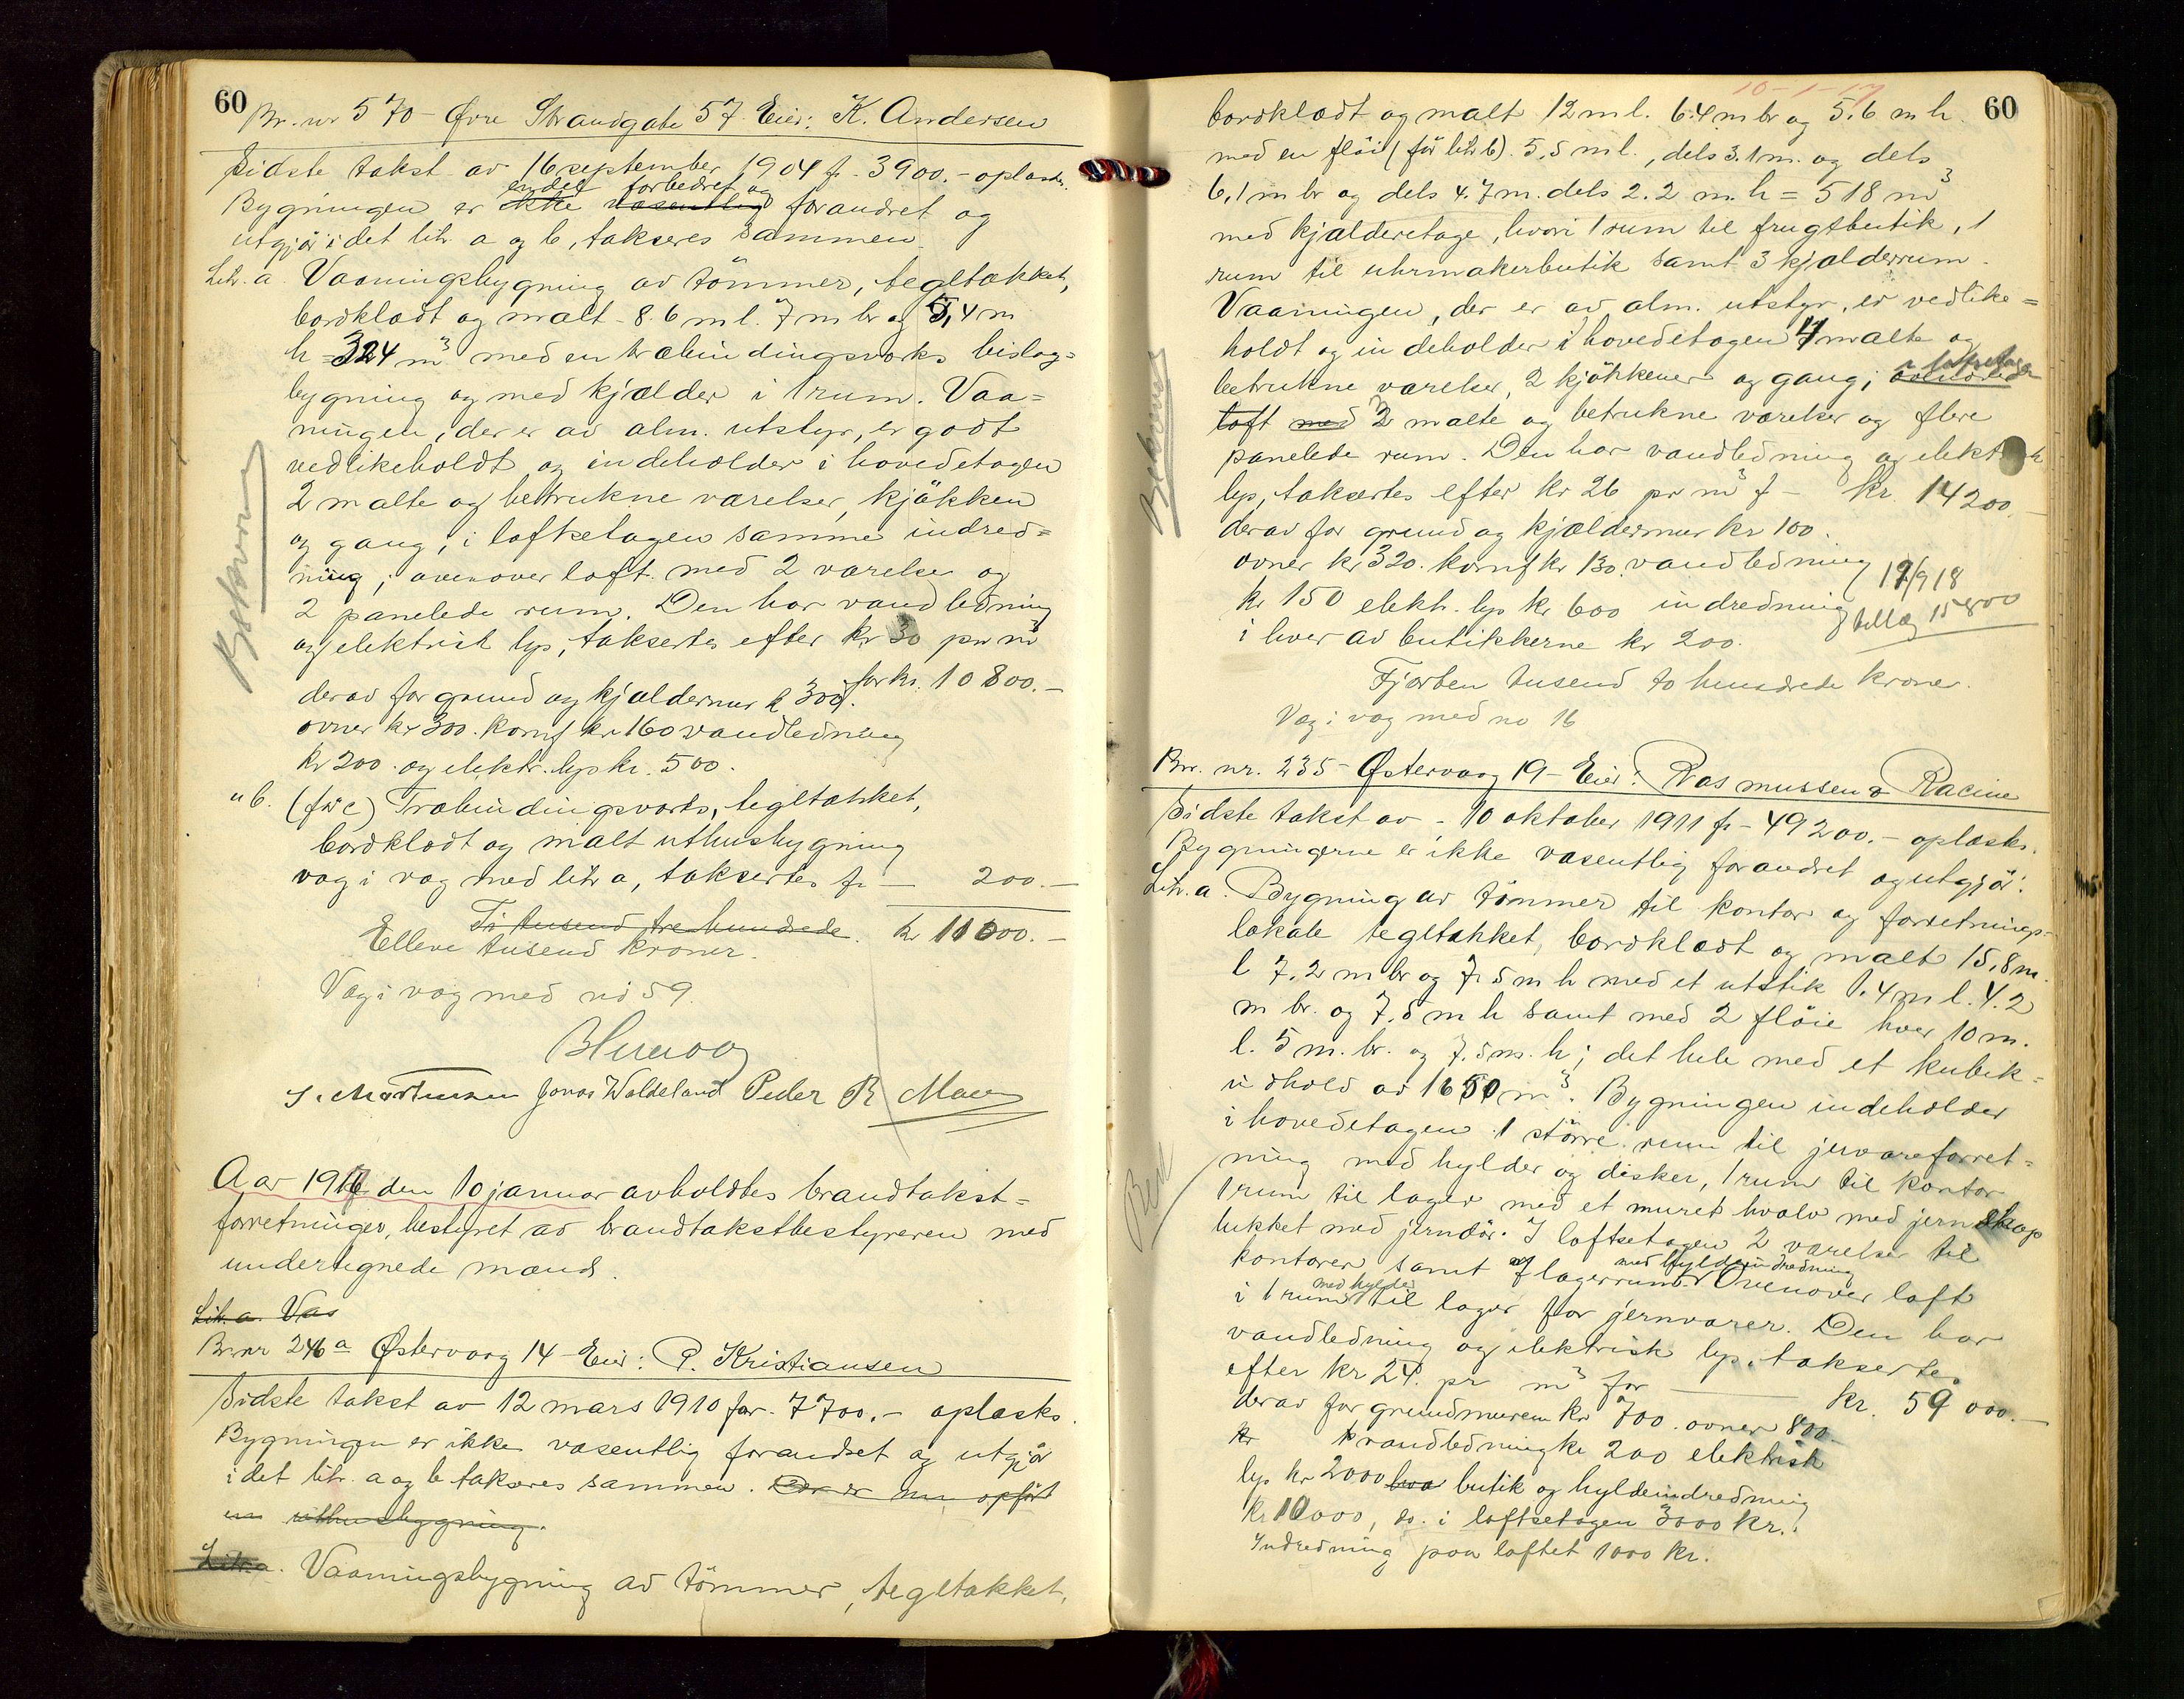 60
Br. nr 570 - Øvre Strandgate 57. Eier: K. Andersen
Sidste takst av 16 september 1904 fr. 3900.- oplæstes.
endel forbedret og
Bygningen er ikke væsentlig forandret og
utgjör i det litr. a og b, takseres sammen.
Litr. a. Vaaningsbygning av tömmer, tegltækket,
bordklædt og malt - 8.6 m l. 7 m br og 5,4 m
h = 324 m³ med en træbindingsverks bislag-
bygning og med kjælder i 1 rum. Vaa-
ningen, der er av alm. utstyr, er godt
vedlikeholdt og indeholder i hovedetagen
2 malte og betrukne værelser, kjökken
og gang; i loftsetagen samme indred-
ning; ovenover loft med 2 værelser og
2 panelede rum. Den har vandledning
og elektrisk lys, takseres efter kr 30 pr m³
for kr. 10800.-
derav for grund og kjældermur k 300.
ovner kr 300. komf kr 160 vandledning
kr 200. og elektr. lys kr. 500.
" b. (för c) Træbindingsverks, tegltækket,
bordklædt og malt uthusbygning
væg i væg med litr a, takseres fr — 200.-
Ti tusend tre hundrede. kr 11000.-
Elleve tusend kroner.
Væg i væg med no 59.
S. Mortensen Jonas Waldeland Peder R. Maeng
Aar 1917 den 10 januar avholdtes brandtakst-
forretninger, bestyret av brandtakstbestyreren med
undertegnede mænd.
Litr. a. Vaa
Br. nr 246a Østervaag 14 - Eier: P. Kristiansen
Sidste takst av 12 mars 1910 for 7700.- oplæstes.
Bygningen er ikke væsentlig forandret og utgjör
i det litr. a og b takseres sammen. Der er nu opfört
en uthusbygning.
Litr. a. Vaaningsbygning av tömmer, tegltækket,
10-1-17
60
bordklædt og malt 12 m l. 6.4 m br og 5.6 m h.
med en flöi (för litr b) 5,5 m l., dels 3.1 m. og dels
6,1 m br og dels 4.7 m. dels 2.2 m. h = 518 m³
med kjælderetage, hvori 1 rum til frugtbutik, 1
rum til uhrmakerbutik samt 3 kjælderrum.
Vaaningen, der er av alm. utstyr, er vedlike-
holdt og indeholder i hovedetagen 4 malte og
betrukne værelser, 2 kjökkener og gang; i loftsetagen
loft med 2 malte og betrukne værelser og flere
panelede rum. Den har vandledning og elektrisk
lys, takseres efter kr 26 pr m³ f - kr. 14200.-
derav for grund og kjældermur kr 100.
ovner kr 320. komf kr 130. vandledning
kr 150 elekt. lys kr 600 indredning
17/9 18
tillæg 15800
i hver av butikkerne kr 200.
Fjorten tusend to hundrede kroner.
Væg i væg med no 16
Br. nr. 235 - Østervaag 19 - Eier: Rasmussen & Racine
Sidste takst av - 10 oktober 1911 fr - 49200.- oplæstes.
Bygningerne er ikke væsentlig forandret og utgjör:
Litr. a. Bygning av tömmer til kontor og forretnings-
lokale tegltækket, bordklædt og malt 15,8 m.
l 7.2 m br og 7,5 m h med et utstik 1.4 m l. 4.2
m br. og 7.5 m h samt med 2 flöie hver 10 m.
l. 5 m. br. og 7.5 m. h; det hele med et kubik-
indhold av 1650 m³. Bygningen indeholder
i hovedetagen 1 större rum til jernvareforret-
ning med hylder og disker, 1 rum til kontor
1 rum til lager med et muret hvælv med jernskap
lukket med jerndör. I loftsetagen 2 værelser til
kontorer samt 7 lagerrum med hyldeindredning. Ovenover loft
i 1 rum med hylder til lager for jernvarer. Den har
vandledning og elektrisk lys, takseres
efter kr 24 pr m³ for — kr. 59000.-
derav for grundmuren kr 700. ovner 800.-
kr vandledning kr 200 elektrisk
lys kr 2000 butik og hyldeindredning
kr 10000, do. i loftsetagen 3000 kr.
Indredning paa loftet 1000 kr.